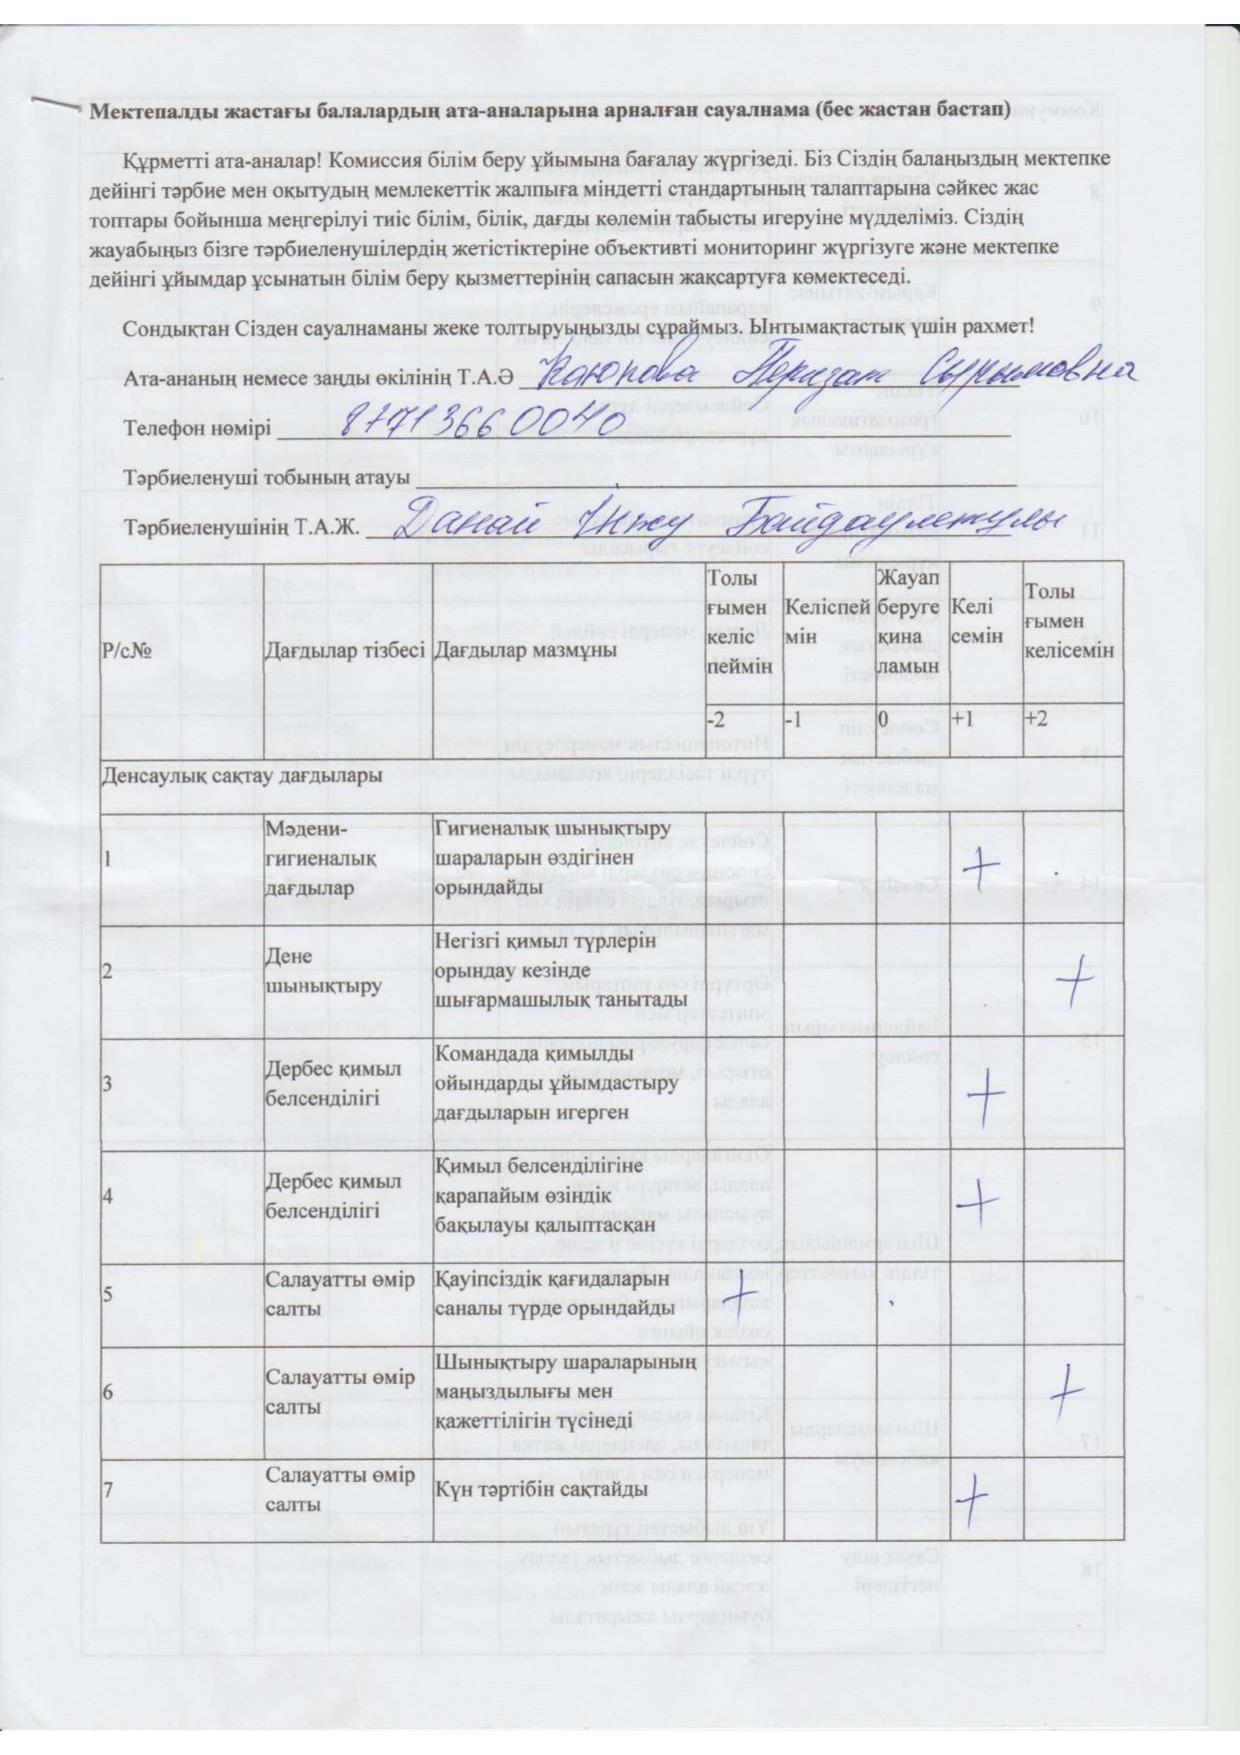 Мектепалды жастағы балалардың ата-аналарына арналған сауалнама (бес жастан бастап)
Құрметті ата-аналар! Комиссия білім беру ұйымына бағалау жүргізеді. Біз Сіздің балаңыздың мектепке
дейінгі тәрбие мен оқытудың мемлекеттік жалпыға міндетті стандартының талаптарына сәйкес жас
топтары бойынша меңгерілуі тиіс білім, білік, дағды көлемін табысты игеруіне мүдделіміз. Сіздің
жауабыңыз бізге тәрбиеленушілердің жетістіктеріне объективті мониторинг жүргізуге және мектепке
дейінгі ұйымдар ұсынатын білім беру қызметтерінің сапасын жақсартуға көмектеседі.
Сондықтан Сізден сауалнаманы жеке толтыруыңызды сұраймыз. Ынтымақтастық үшін рахмет!
Ата-ананың немесе заңды өкілінің Т.А.Ә Каюпова Перизат Сырымовна
Телефон нөмірі 87713660040
Тәрбиеленуші тобының атауы
Тәрбиеленушінің Т.А.Ж. Данай Інжу Байдаулетұлы
Р/с№
Дағдылар тізбесі
Дағдылар мазмұны
Толы
ғымен
келіс
пеймін
Келіспей
мін
Жауап
беруге
қина
ламын
Келі
семін
Толы
ғымен
келісемін
-2 -1 0 +1 +2
Денсаулық сақтау дағдылары
1
Мәдени-
гигиеналық
дағдылар
Гигиеналық шынықтыру
шараларын өздігінен
орындайды
+
2
Дене
шынықтыру
Негізгі қимыл түрлерін
орындау кезінде
шығармашылық танытады
+
3
Дербес қимыл
белсенділігі
Командада қимылды
ойындарды ұйымдастыру
дағдыларын игерген
+
4
Дербес қимыл
белсенділігі
Қимыл белсенділігіне
қарапайым өзіндік
бақылауы қалыптасқан
+
5
Салауатты өмір
салты
Қауіпсіздік қағидаларын
саналы түрде орындайды
+
6
Салауатты өмір
салты
Шынықтыру шараларының
маңыздылығы мен
қажеттілігін түсінеді
+
7
Салауатты өмір
салты
Күн тәртібін сақтайды
+